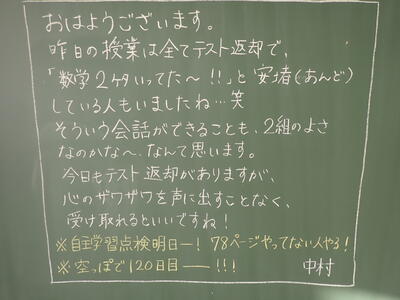 おはようございます。
昨日の授業は全てテスト返却で、
「数学2ケタいってた〜!!」と安堵(あんど)
している人もいましたね…笑
そういう会話ができることも、2組のよさ
なのかな〜、なんて思います。
今日もテスト返却がありますが、
心のザワザワを声に出すことなく、
受け取れるといいですね!
※自主学習点検明日ー! 78ページやってない人やる!
※空っぽで120日目――!!! 中村